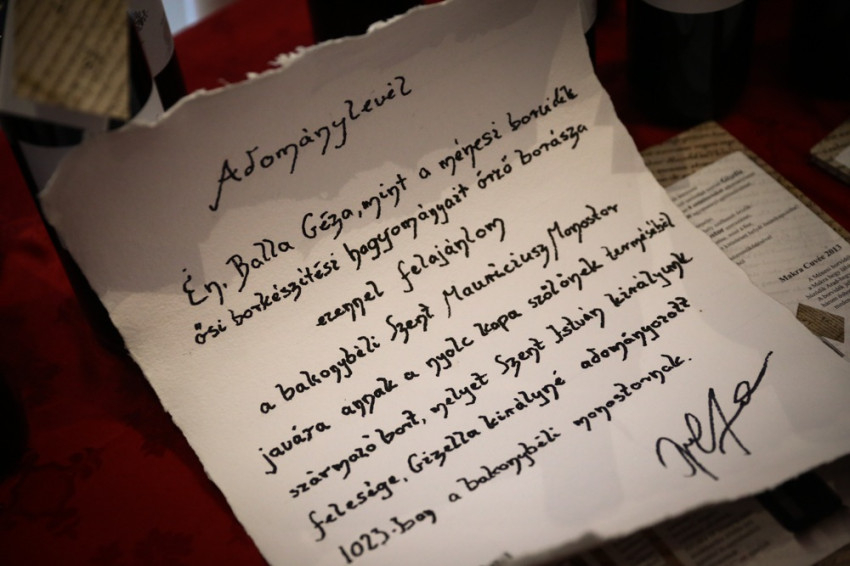 Adománylevél
Én, Balla Géza, mint a ménesi borvidék
ősi borkészítési hagyományait őrző borásza
ezennel felajánlom
a bakonybéli Szent Mauríciusz Monostor
javára annak a nyolc kapa szőlőnek terméséből
származó bort, melyet Szent István királyunk
felesége, Gizella királyné adományozott
1023-ban a bakonybéli monostornak.
Makra Cuvée 2013